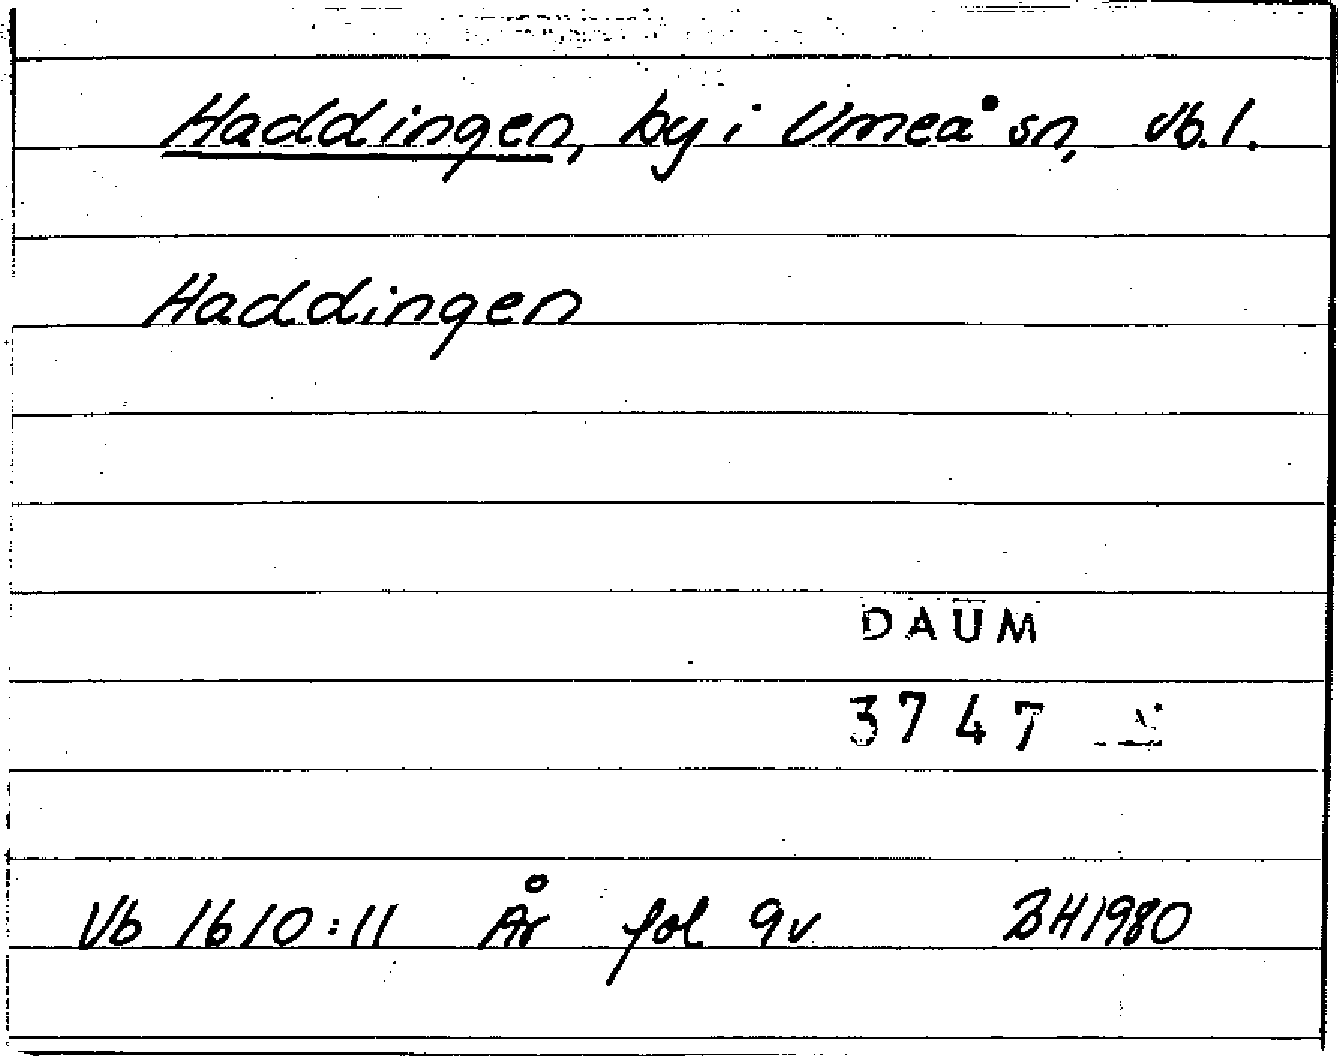 Haddingen, by i Umeå sn, Vb.l.
Haddingen
DAUM
3747
Vb 1610:11 År fol 9v BH1980